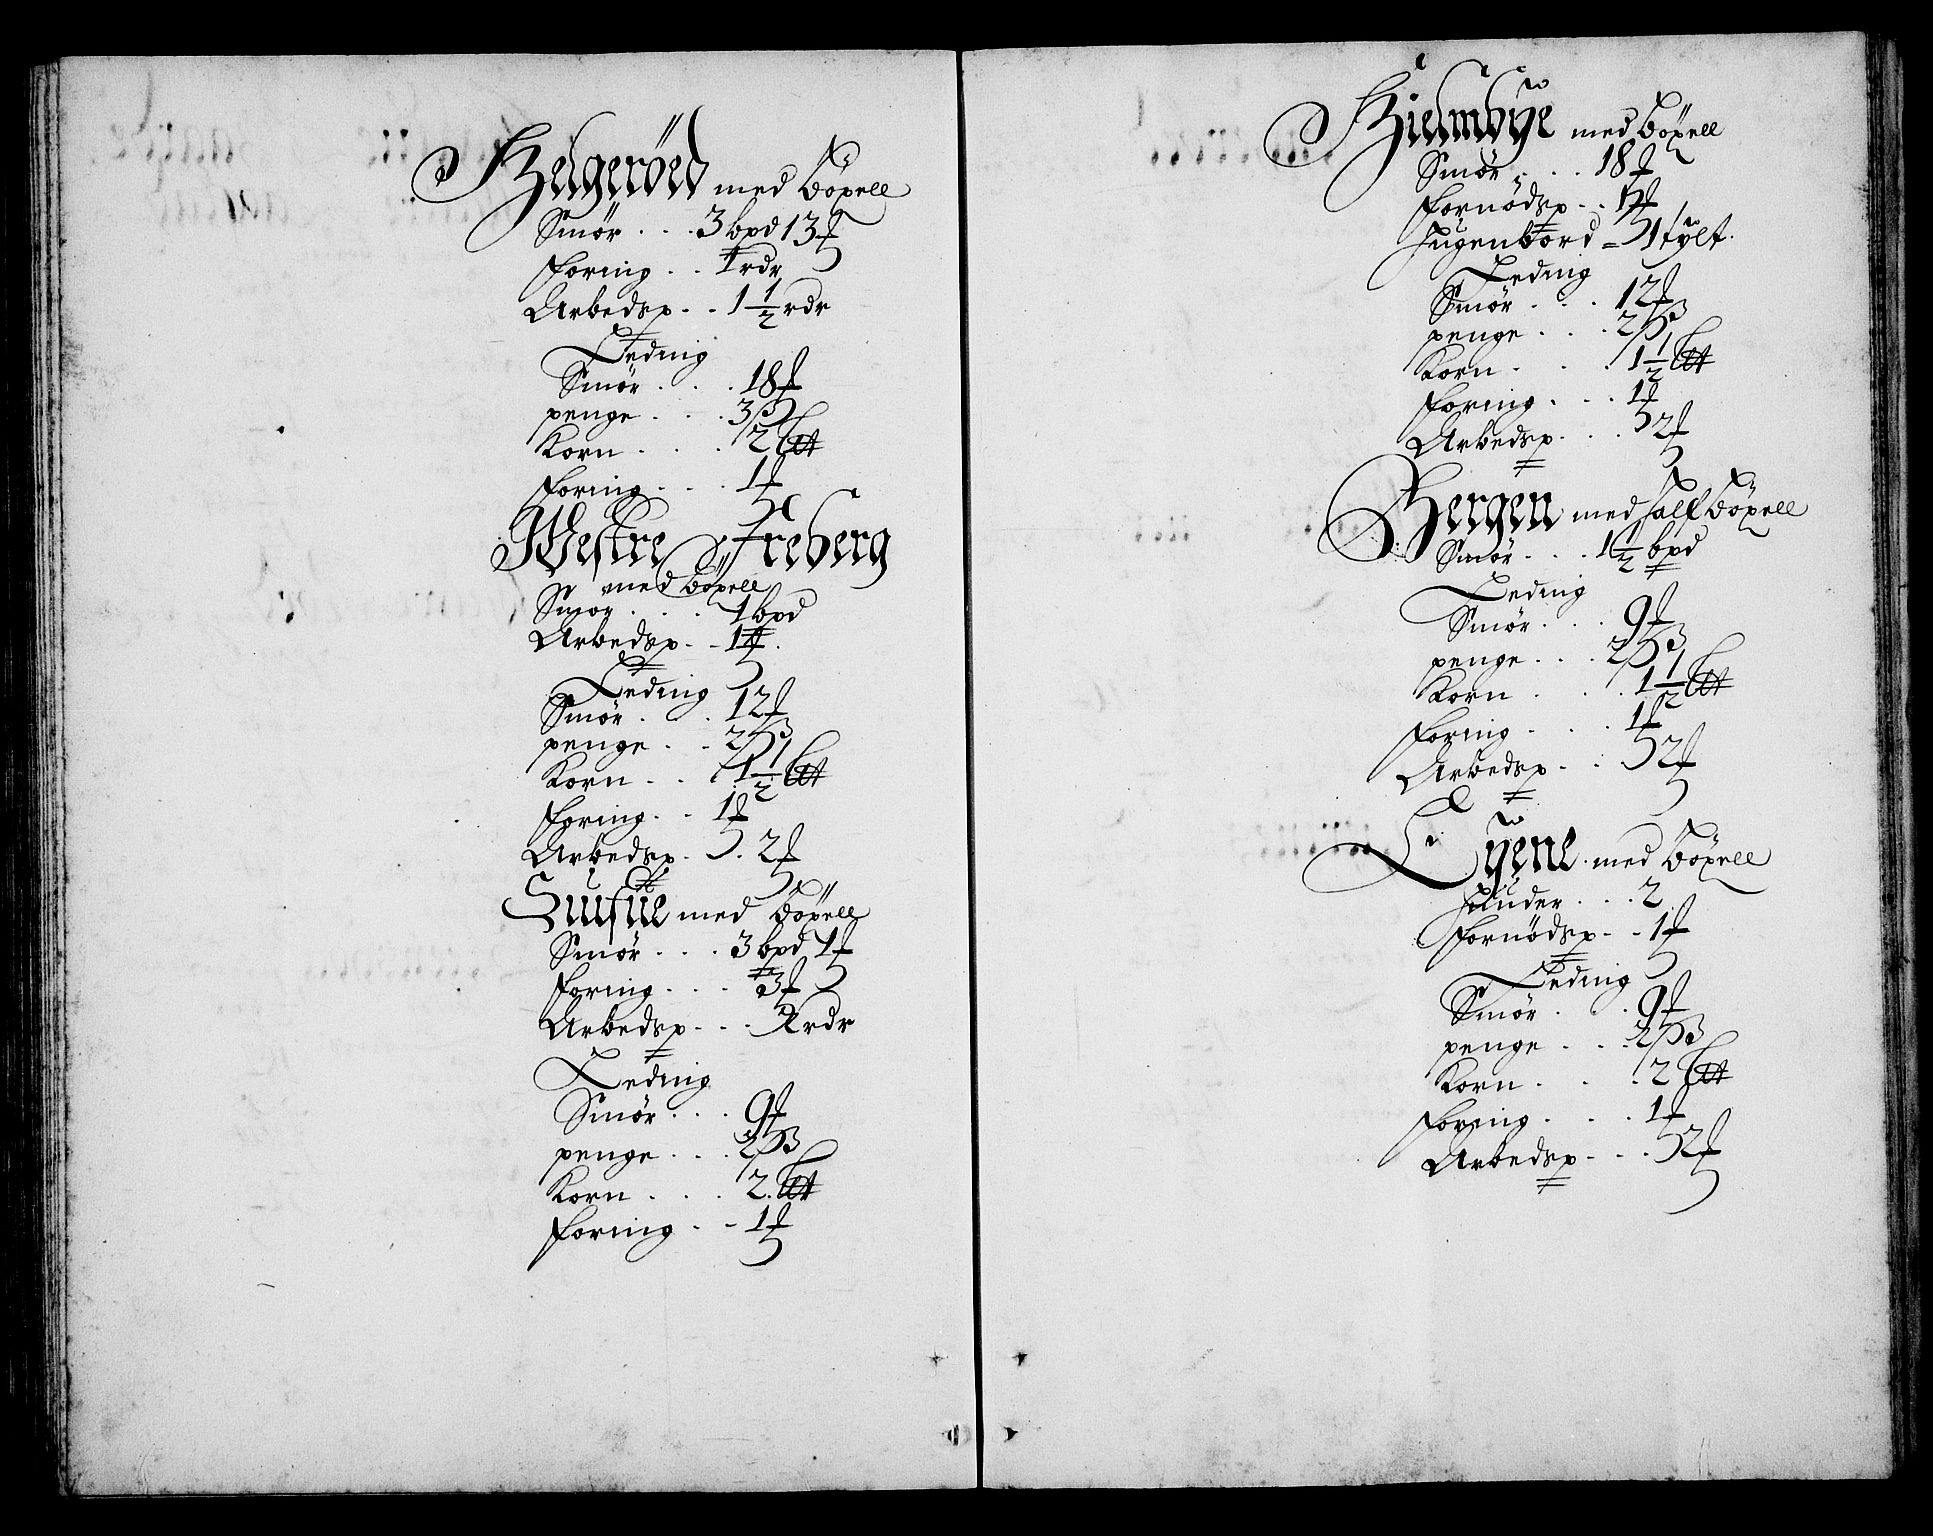 Helgerøed med böxell
Smör . . . 3 bpd 13 ℔
foring . . 1 rdr
Arbedsp . . 1 1/2 rdr
Leding
Smör . . . 18 ℔
penge . . . 3 ß
Korn . . . . 2 Ltt
foring . . . 1 ℔
Westre Freberg
med böxell
Smör . . . . 1 bpd
Arbedsp . . 1 ℔
Leding
Smör . . . 12 ℔
penge . . 2 ß
Korn . . . 1 1/2 Ltt
foring . . 1 ℔
Arbedsp . . 2 ℔
med böxell
Smör . . . 3 bpd 1 ℔
foring . . . . 3 ℔
Arbedsp . . . rdr
Leding
Smör . . . 9 ℔
penge . . . 2 ß
Korn . . . . 2 Ltt
foring . . 1 ℔
Hielmbÿe med böxell
Smör . . . 18 ℔
fornödsp . . ℔
Hugenbord - 1 tÿlt.
Leding
Smör . . . 12 ℔
penge . . . 2 ß
Korn . . . . 1 1/2 Ltt
foring . . . 1 ℔
Arbedsp . . . 2 ℔
Bergen med half böxell
Smör . . . 1 1/2 bpd
Leding
Smör . . . 9 ℔
penge . . . 2 ß
Korn . . . . 1 1/2 Ltt
foring . . . . 1 ℔
Arbedsp . . . 2 ℔
Eÿene med böxell
Huder . . . 2
fornödsp . . 1 ℔
Leding
Smör . . . 9 ℔
penge . . . 2 ß
Korn . . . . 2 Ltt
foring . . . . 1 ℔
Arbedsp . . . 2 ℔